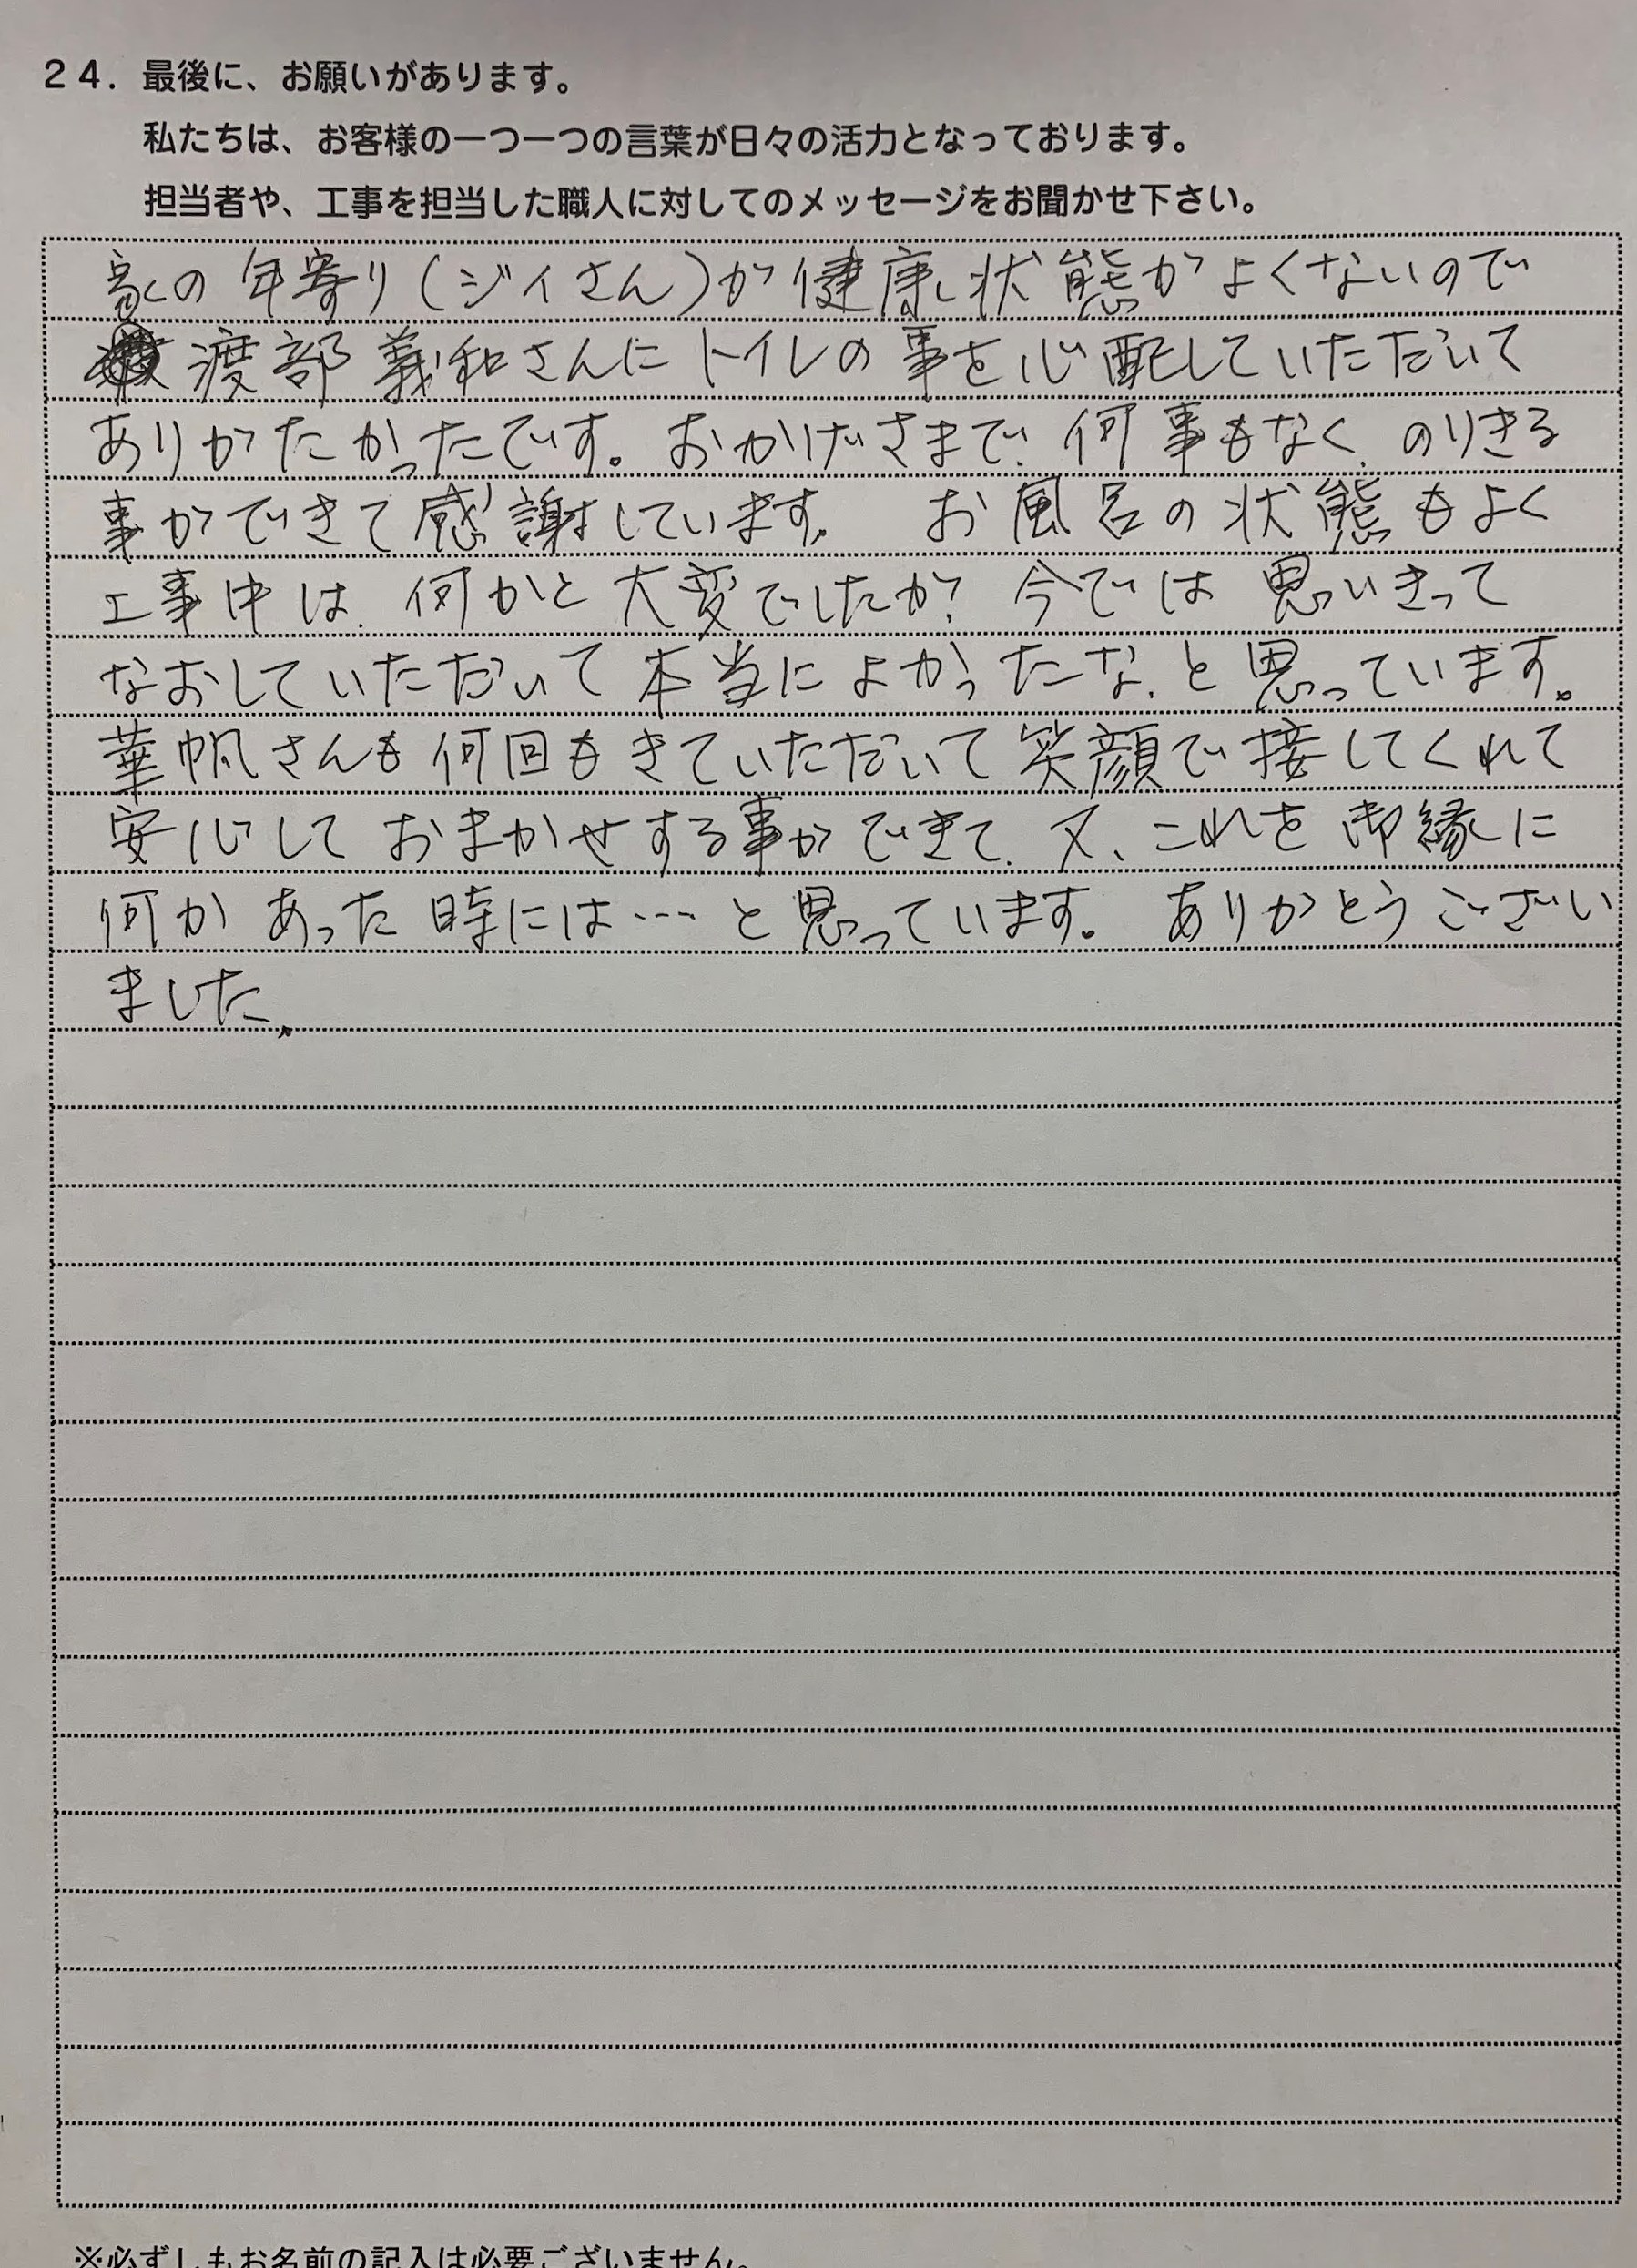 24. 最後に、お願いがあります。
私たちは、お客様の一つ一つの言葉が日々の活力となっております。
担当者や、工事を担当した職人に対してのメッセージをお聞かせ下さい。
家の年寄り(ジイさん)が健康状態がよくないので
渡部義和さんにトイレの事を心配していただいて
ありがたかったです。おかげさまで、何事もなく、のりきる
事ができて感謝しています。 お風呂の状態もよく
工事中は、何かと大変でしたが、今では思いきって
なおしていただいて本当によかったな、と思っています。
華帆さんも何回もきていただいて笑顔で接してくれて
安心しておまかせする事ができて、又、これを御縁に
何かあった時には…と思っています。ありがとうござい
ました。
※必ずしもお名前の記入は必要ございません。